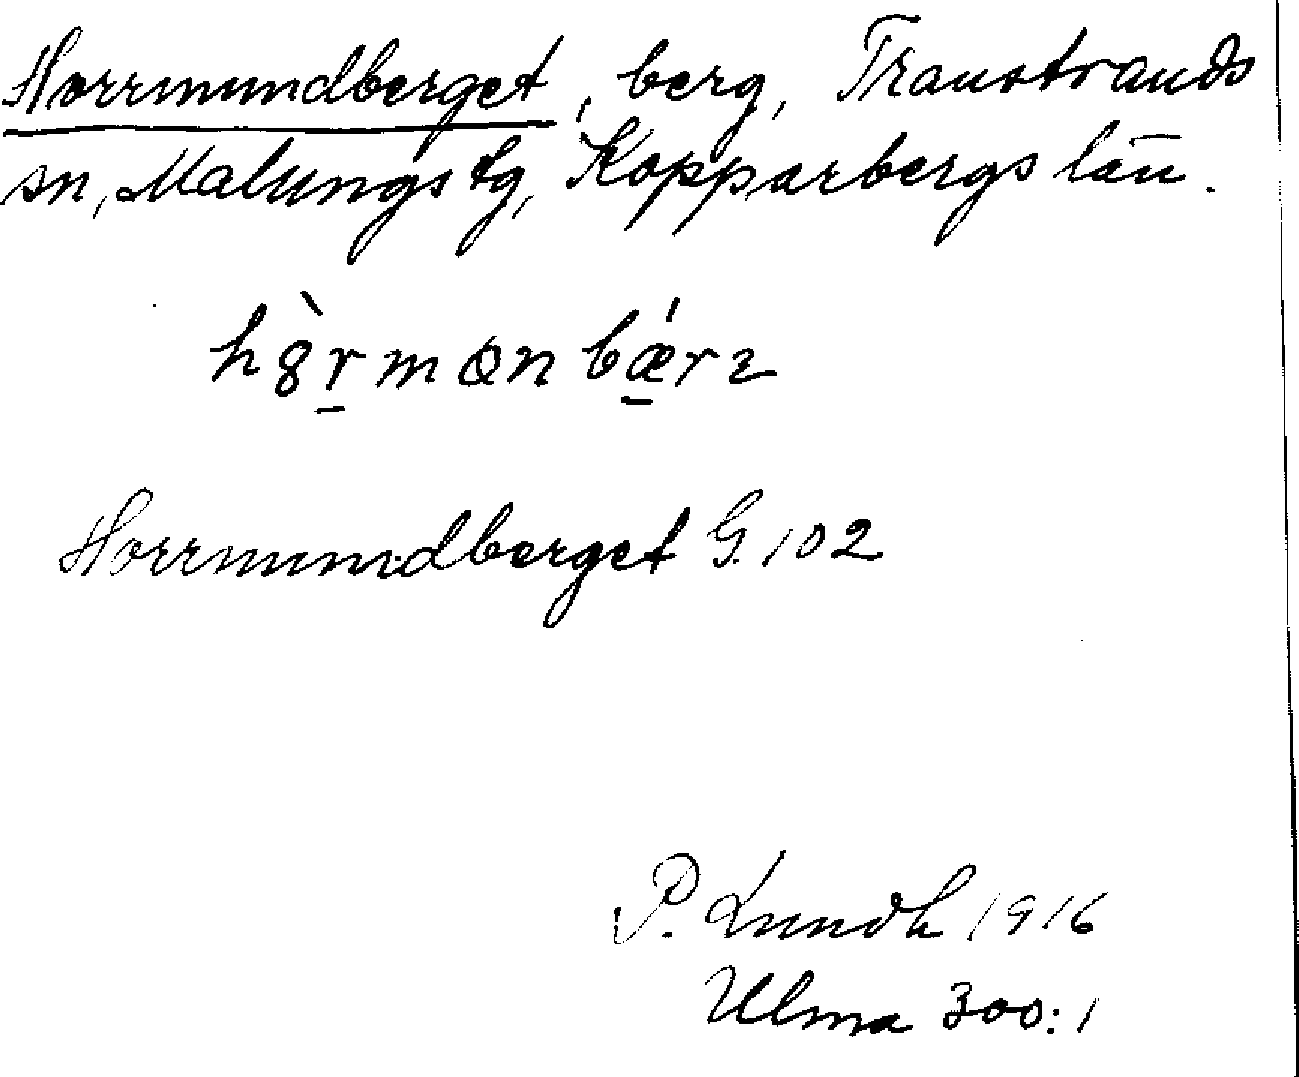 Horrmundberget, berg, Transtrands
sn, Malungs tg, Kopparbergs län.
h8̀r̲mɷnbǽ̲rz
Horrmundberget G. 102
P. Lundh 1916
Ulma 300:1